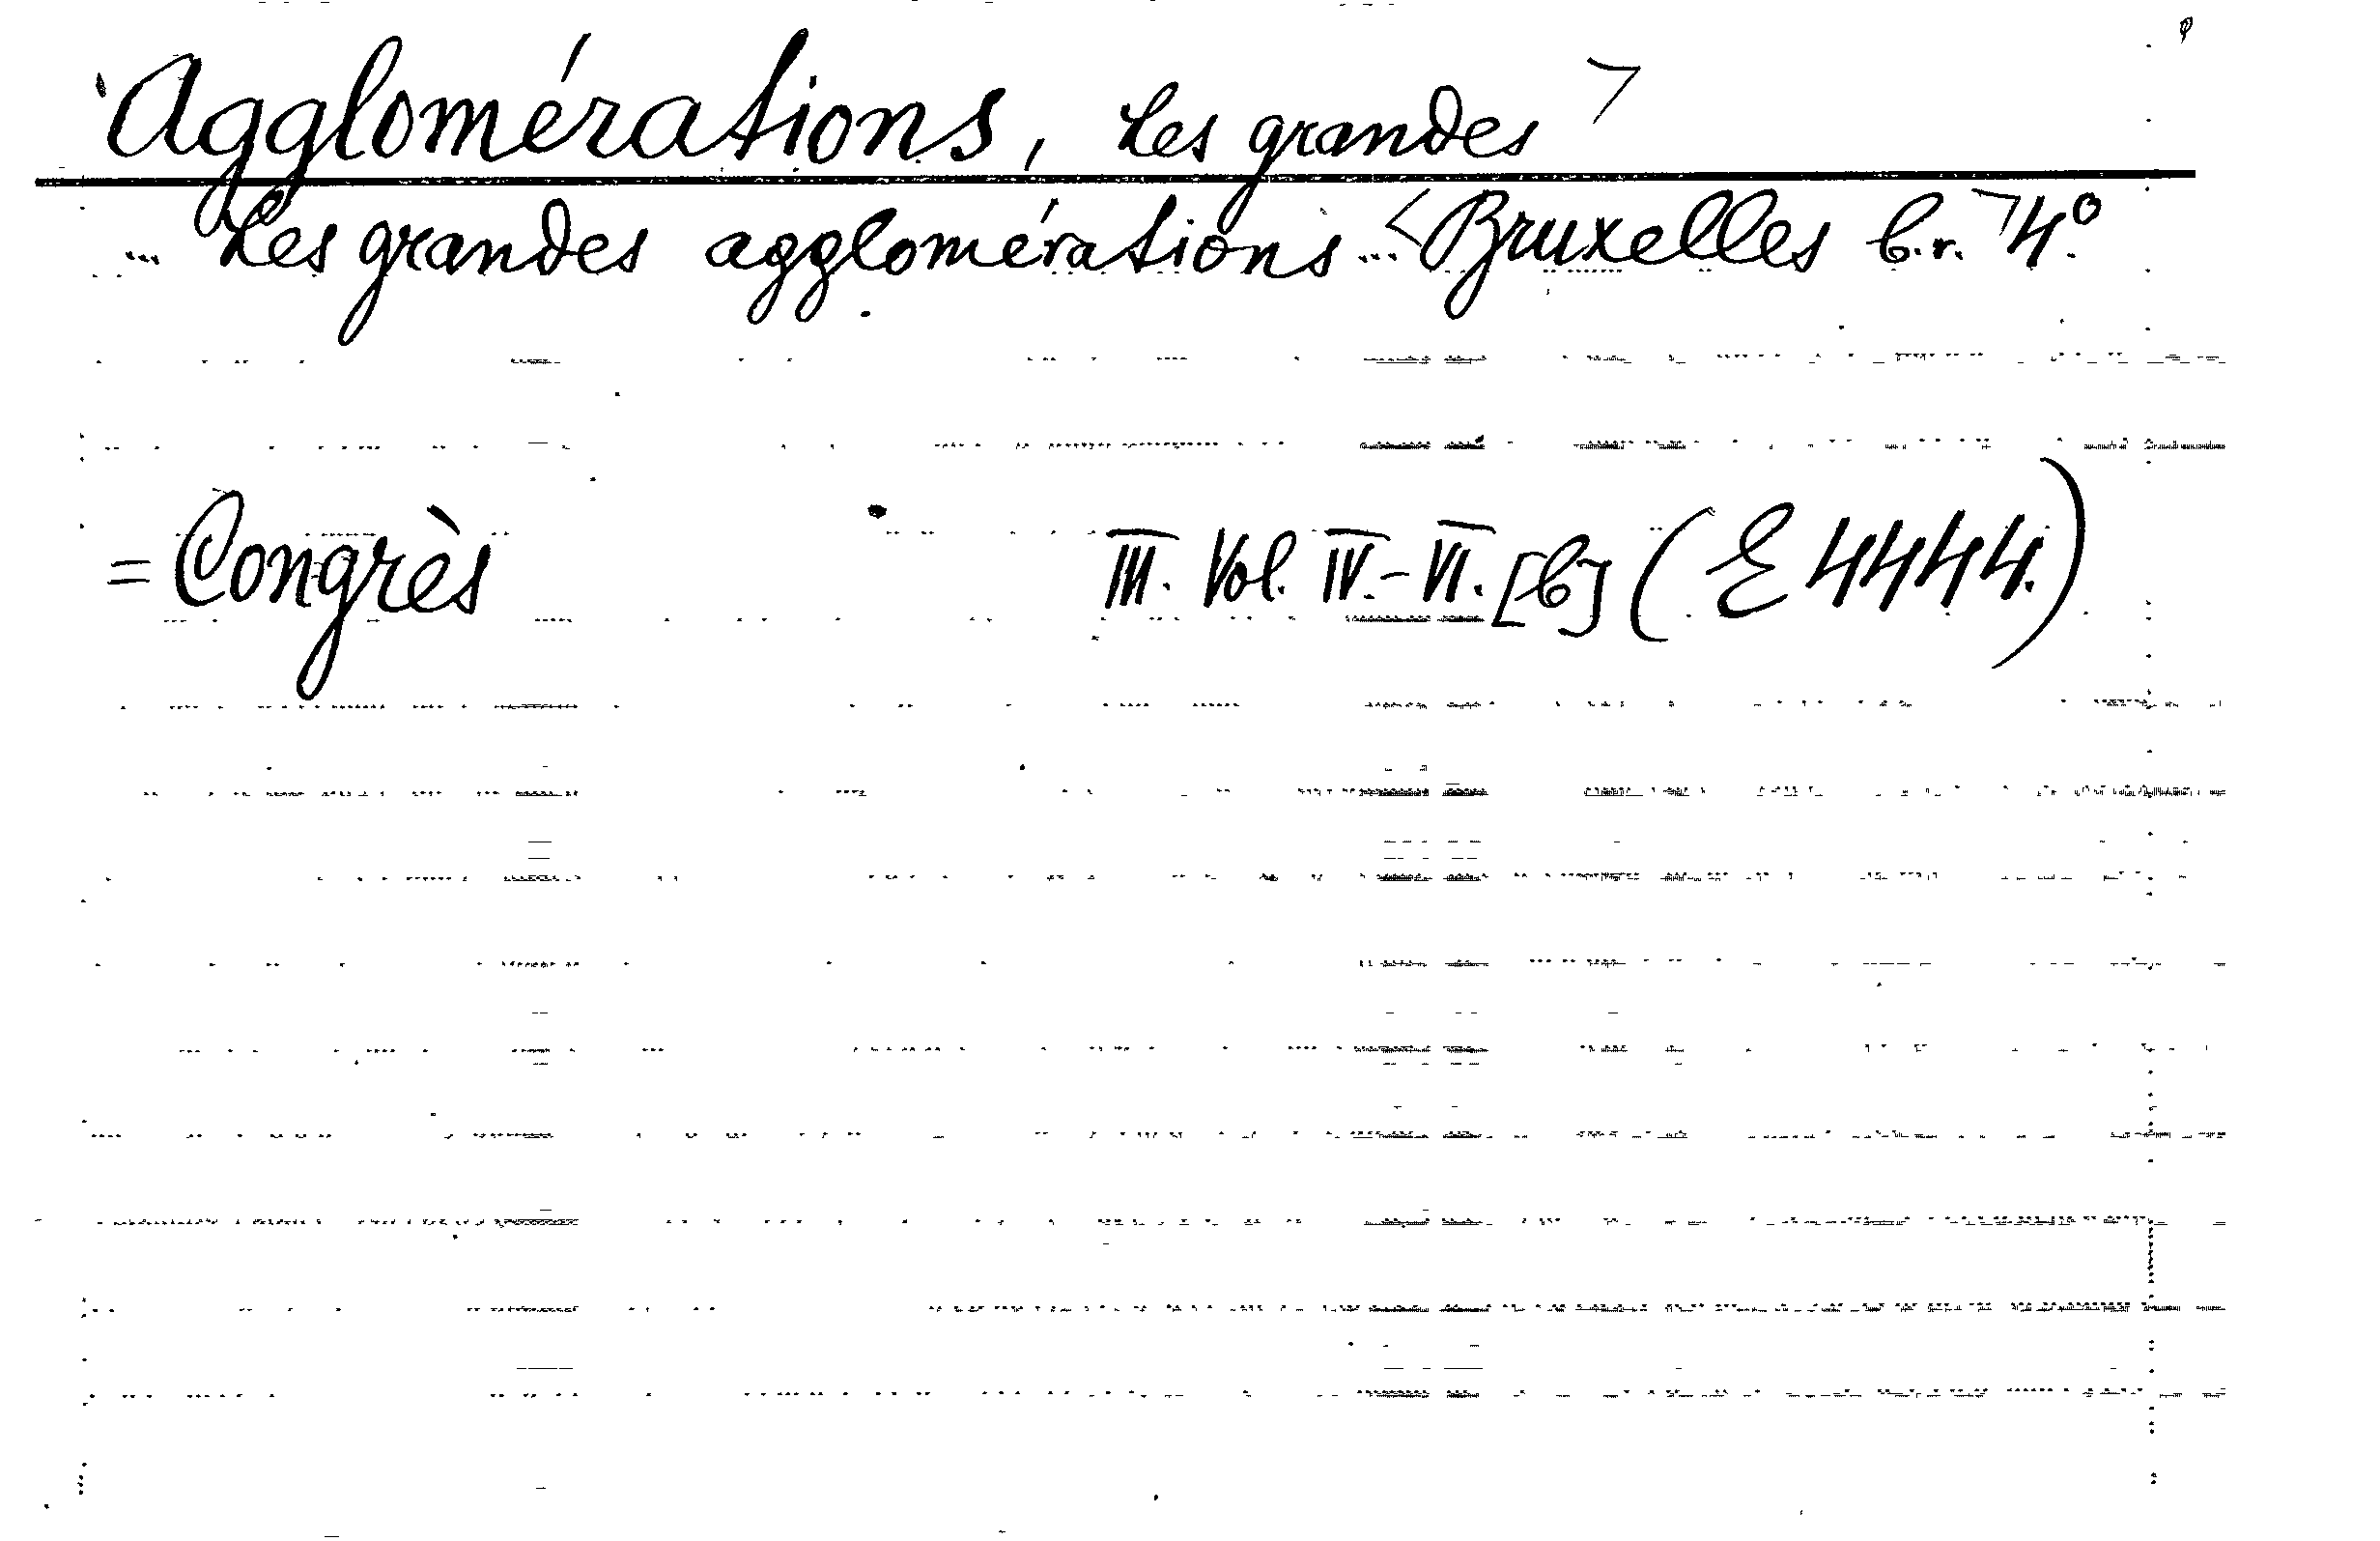 Agglomérations, Les grandes ㄱ
... Les grandes agglomérations ... < Bruxelles b. r. ㄱ 4º.
= Congrès III. Vol. IV.-VI. [b] (E 4444.)